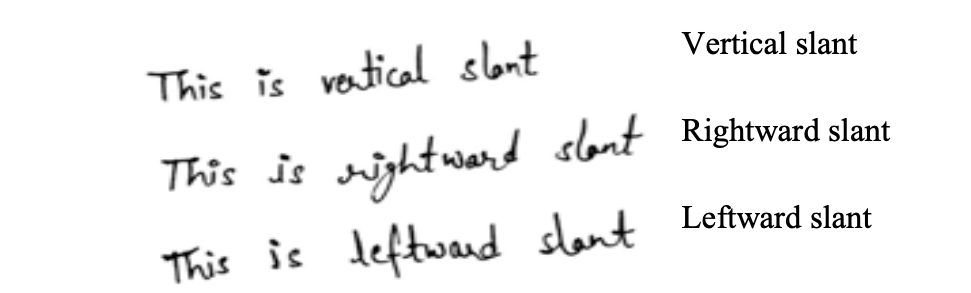 This is vertical slant Vertical slant
This is rightward slant Rightward slant
This is leftward slant Leftward slant